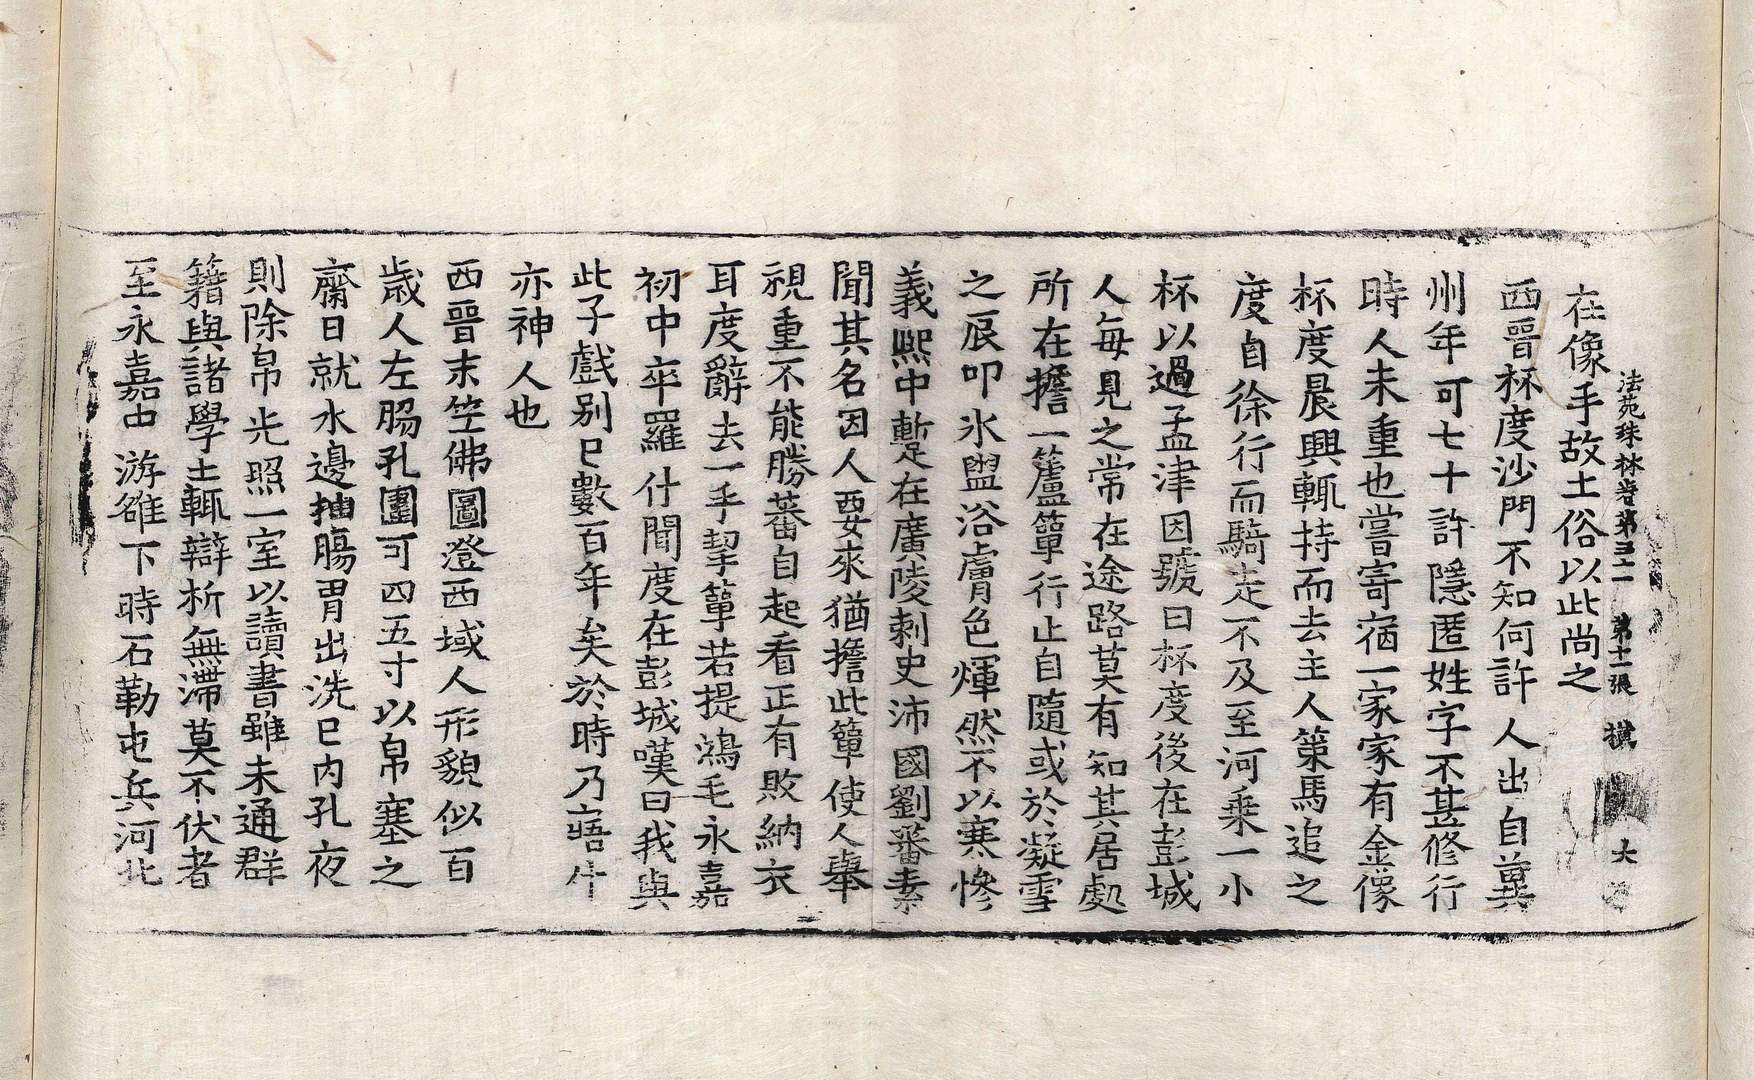 法苑珠林卷第三十一 第十一張 橫
在像手故土俗以此尚之
西晉杯度沙門不知何許人出自冀
州年可七十許隱匿姓字不甚修行
時人未重也嘗寄宿一家家有金像
杯度晨興輒持而去主人策馬追之
度自徐行而騎走不及至河乗一小
杯以過孟津因號曰杯度後在彭城
人每見之常在途路莫有知其居處
所在擔一籚簞行止自隨或於凝雪
之辰叩氷盥浴膚色煇然不以寒慘
義熙中蹔在廣陵刺史沛國劉蕃素
聞其名因人要來猶擔此簞使人舉
視重不能勝蕃自起看正有敗納衣
耳度辭去一手挈簞若提鴻毛永嘉
初中卒羅什聞度在彭城嘆曰我與
此子戲别已數百年矣於時乃寤什
亦神人也
西晉末竺佛圖澄西域人形貌似百
歲人左脇孔圍可四五寸以帛塞之
齋日就水邊抽腸胃出洗已内孔夜
則除帛光照一室以讀書雖未通群
籍與諸學士輒辯析無滯莫不伏者
至永嘉中游雒下時石勒屯兵河北